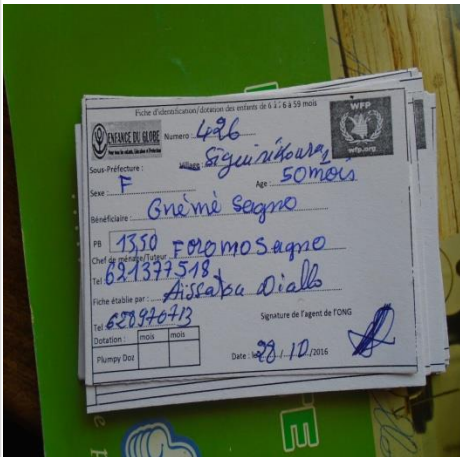 Fiche d'identification/dotation des enfants de 6 à 59 mois
ENFANCE DU GLOBE
Numero : 426
WFP
wfp.org
Sous-Préfecture :
Village :
Sexe : F
Age : 50 mois
Bénéficiaire : Gnémé Sagno
PB 13,50
Chef de ménage/Tuteur Foromo Sagno
Tel 621377518
Fiche établie par : Aissatou Diallo
Tel 628970713
Signature de l'agent de l'ONG
Dotation : mois mois
Plumpy Doz
Date : le 28/10/2016
E